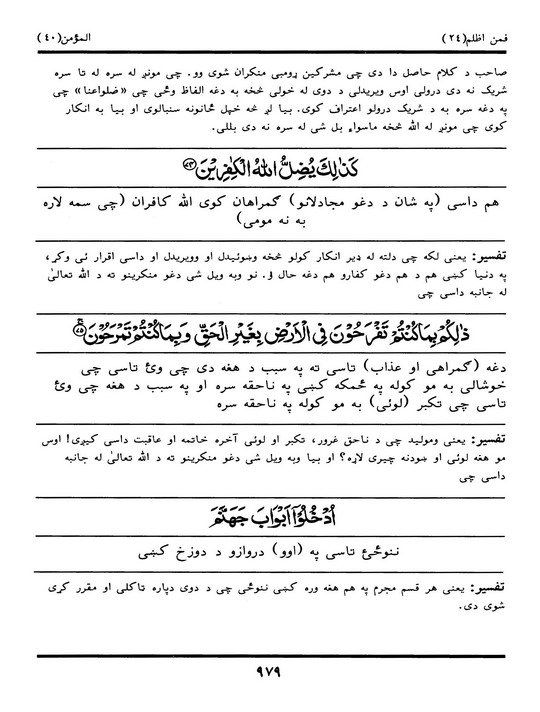 فمن اظلم(٢٤)
المؤمن(٤٠)
صاحب د کلام حاصل دا دی چې مشرکین ړومبی منکران شوی وو. چې مونږ له سره له تا سره
شریک نه دی درولی اوس ویریدلی د دوی له خولی څخه به دغه الفاظ وځی چې «ضلواعنا» چې
په دغه سره به د شریک درولو اعتراف کوی. بیا لږ څه خپل ځانونه سنبالوی او بیا به انکار
کوی چې مونږ له الله څخه ماسواء بل شی له سره نه دی بللی.
كَذٰلِكَ يُضِلُّ اللّٰهُ الْكٰفِرِيْنَ﴿٧٤﴾
هم داسې (په شان د دغو مجادلانو) ګمراهان کوی الله کافران (چې سمه لاره
به نه مومی)
تفسیر: یعنی لکه چې دلته له ډیر انکار کولو څخه وښوئیدل او وویریدل او داسې اقرار ئی وکړ،
په دنیا کښی هم د هم دغو کفارو هم دغه حال ؤ. نو وبه ویل شی دغو منکرینو ته د الله تعالیٰ
له جانبه داسې چې
ذٰلِكُمْ بِمَا كُنْتُمْ تَفْرَحُوْنَ فِى الْاَرْضِ بِغَيْرِ الْحَقِّ وَبِمَا كُنْتُمْ تَمْرَحُوْنَ﴿٧٥﴾
دغه (ګمراهی او عذاب) تاسی ته په سبب د هغه دی چې وئ تاسی چې
خوشالی به مو کوله په ځمکه کښی په ناحقه سره او په سبب د هغه چې وئ
تاسی چې تکبر (لوئی) به مو کوله په ناحقه سره
تفسیر: یعنی ومولید چې د ناحق غرور، تکبر او لوئی آخره خاتمه او عاقبت داسې کیږی! اوس
مو هغه لوئی او ښودنه چیری لاړه؟ او بیا وبه ویل شی دغو منکرینو ته د الله تعالیٰ له جانبه
داسې چې
اُدْخُلُوْٓا اَبْوَابَ جَهَنَّمَ
ننوځئ تاسی په (اوو) دروازو د دوزخ کښی
تفسیر: یعنی هر قسم مجرم په هم هغه وره کښی ننوځی چې د دوی دپاره تاکلی او مقرر کړی
شوی دی.
٩٧٩